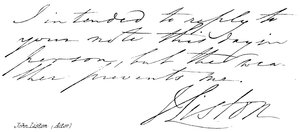 I intended to reply to
your note this day in
person, but the wea
ther prevents me.
J Liston
John Liston (Actor)